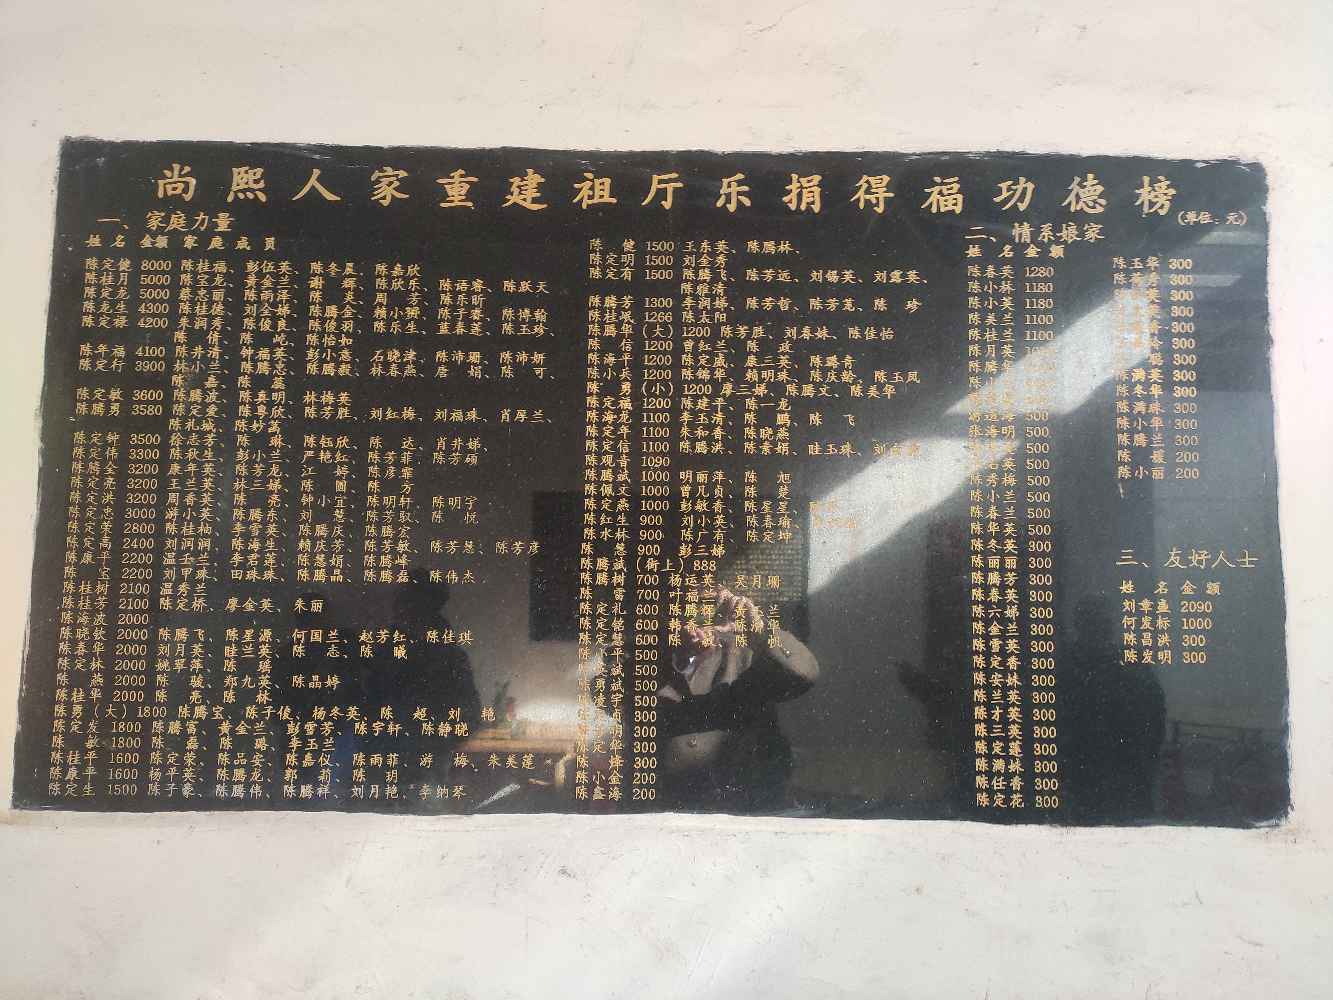 尚熙人家重建祖厅乐捐得福功德榜
(单位:元)
一、家庭力量
姓名 金额 家庭成员
陈定健 8000 陈桂福、彭伍英、陈冬晨、陈嘉欣
陈桂月 5000 陈宝龙、黄金兰、谢辉、陈欣乐、陈语睿、陈跃天
陈定龙 5000 蔡志丽、陈雨泽、陈炎、周芳、陈乐昕
陈龙生 4300 陈桂德、刘金娣、陈腾金、赖小狮、陈子赛、陈博翰
陈定禄 4200 朱润秀、陈俊良、陈俊羽、陈乐生、蓝春莲、陈玉珍、
陈倩、陈屹、陈怡如
陈年福 4100 陈井清、钟福英、彭小燕、石晓津、陈沛珊、陈沛妍
陈定行 3900 林小兰、陈腾忠、陈腾毅、林春燕、唐娟、陈可、
陈嘉、陈蕊
陈定敏 3600 陈腾波、陈真明、林梅英
陈腾勇 3580 陈定爱、陈粤欣、陈芳胜、刘红梅、刘福珠、肖厚兰、
陈礼城、陈妙菡
陈定钟 3500 徐志芳、陈琳、陈钰欣、陈达、肖井娣、
陈定伟 3300 陈秋生、彭小兰、严艳红、陈芳菲、陈芳硕
陈腾金 3200 康年英、陈芳龙、江婷、陈彦霏
陈定亮 3200 王兰英、林三娣、陈圆、陈万
陈定洪 3200 周香英、陈亮、钟小宜、陈明轩、陈明宇
陈定忠 3000 游小英、陈腾东、刘慧、陈芳驭、陈悦
陈定荣 2800 陈桂柚、李雪英、陈腾庆、陈腾宏
陈定高 2400 刘润润、陈海生、赖庆芳、陈芳敏、陈芳慧、陈芳彦
陈康平 2200 温玉兰、李若莲、陈慧娟、陈腾峰
陈宝 2200 刘甲珠、田珠珠、陈腾晶、陈腾磊、陈伟杰
陈桂树 2100 温秀兰
陈桂芳 2100 陈定桥、廖金英、朱丽
陈海波 2000
陈晓钦 2000 陈腾飞、陈星源、何国兰、赵芳红、陈佳琪
陈春华 2000 刘月英、眭兰英、陈志、陈曦
陈定林 2000 姚翠萍、陈瑶
陈燕 2000 陈骏、郑九英、陈晶婷
陈桂华 2000 陈亮、陈林
陈勇(大) 1800 陈腾宝、陈子俊、杨冬英、陈超、刘艳
陈定发 1800 陈腾富、黄金兰、彭雪芳、陈宇轩、陈静晓
陈敏 1800 陈磊、陈璐、李玉兰
陈桂平 1600 陈定荣、陈品安、陈嘉仪、陈雨菲、游梅、朱美莲
陈康平 1600 杨平英、陈腾龙、郭莉、陈玥
陈定生 1500 陈子豪、陈腾伟、陈腾祥、刘月艳、李纳琴
陈健 1500 王东英、陈腾林
陈定明 1500 刘金秀
陈定有 1500 陈腾飞、陈芳远、刘锡英、刘露英、
陈雅清
陈腾芳 1300 李润娣、陈芳哲、陈芳苋、陈珍
陈桂岷 1266 陈太阳
陈腾华(大) 1200 陈芳胜、刘春妹、陈佳怡
陈信 1200 曾红兰、陈斌
陈海平 1200 陈定威、康三英、陈腾青
陈小兵 1200 陈锦华、赖明珠、陈庆龄、陈玉凤
陈勇(小) 1200 廖三娣、陈腾文、陈美华
陈定福 1200 陈建平、陈一龙
陈海龙 1100 李玉清、陈鹏、陈飞
陈定年 1100 朱和香、陈晓燕
陈定信 1100 陈腾洪、陈素娟、眭玉珠、刘
陈观音 1090
陈腾斌 1000 明丽萍、陈旭
陈佩文 1000 曾几贞、陈楚
陈定燕 1000 彭敏香、陈星星
陈红生 900 刘小英、陈春瑜
陈水林 900 陈广有、陈定坤
陈慧 900 彭三娣
陈腾斌(街上) 888
陈腾树 700 杨运英、吴月珊
陈雷 700 叶福兰
陈定礼 600 陈腾辉、黄玉兰
陈定铭 600 韩香、陈沛华
陈定慧 600 陈敏、陈帆
小平 500
斌 500
勇斌 500
宇 500
贞 300
明 300
定华 300
陈烽 300
陈小金 200
陈鑫海 200
二、情系娘家
姓名 金额
陈春英 1280
陈小林 1180
陈小英 1180
陈美兰 1100
陈桂兰 1100
陈月英
海明 500
英 500
陈秀梅 500
陈小兰 500
陈春英 500
陈华英 500
陈冬英 300
陈丽丽 300
陈腾芳 300
陈春英 300
陈六娣 300
陈金兰 300
陈雪英 300
陈定香 300
陈安妹 300
陈兰英 300
陈才英 300
陈三英 300
陈定莲 300
陈满妹 300
陈任香 300
陈定花 300
陈玉华 300
秀 300
英 300
300
香 300
玲 300
聪 300
陈满英 300
陈冬华 300
陈满珠 300
陈小华 300
陈腾兰 300
陈媛 200
陈小丽 200
三、友好人士
姓名 金额
刘章鱼 2090
何发标 1000
陈昌洪 300
陈发明 300